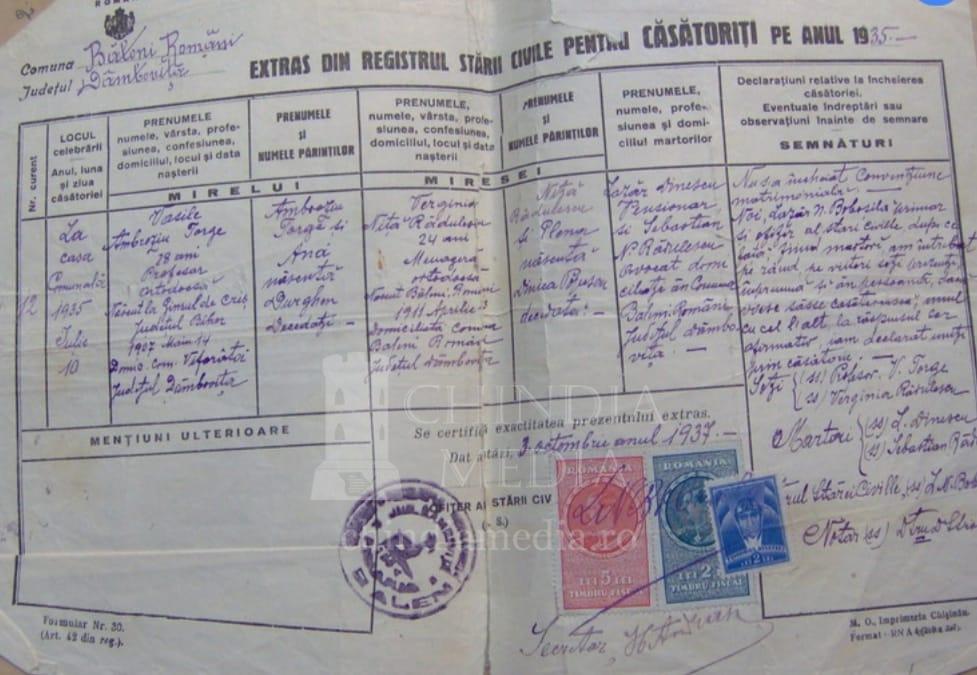 ROMÂNIA
Comuna Băleni Români
Județul Dâmbovița
EXTRAS DIN REGISTRUL STĂRII CIVILE PENTRU CĂSĂTORIȚI PE ANUL 1935.—
Nr. curent
LOCUL
celebrării
Anul, luna
și ziua
căsătoriei
PRENUMELE
numele, vârsta, profe-
siunea, confesiunea,
domiciliul, locul și data
nașterii
PRENUMELE
și
NUMELE PĂRINȚILOR
MIRELUI
PRENUMELE,
numele, vârsta, profe-
siunea, confesiunea,
domiciliul, locul și data
nașterii
PRENUMELE
și
NUMELE PĂRINȚILOR
MIRESEI
PRENUMELE,
numele, profe-
siunea și domi-
ciliul martorilor
Declarațiuni relative la încheierea
căsătoriei.
Eventuale îndreptări sau
observațiuni înainte de semnare
SEMNĂTURI
12
La
casa
Comunală
1935
Iulie
10
Vasile
Ambroziu Torge
28 ani
Profesor
ortodoosă
Născut la
Județul Bihor
1907
Dom. com.
Județul Dâmbovița
Ambroziu
Torge și
Ana
născută
Decedați —
Verginia
Niță Rădulescu
24 ani
Menageră
ortodoosă
Născut Băleni Români
1911 Aprilie 3
Domiciliată comuna
Băleni Români
Județul Dâmbovița
Niță
Rădulescu
și Elena
născută
Dinică Popescu
decedata —
Lazăr Dinescu
Pensionar
și Sebastian
N. Rădulescu
avocat domi
ciliați în Comuna
Băleni-Români
Județul Dâmbo
vița. —
Nu s'a încheiat Convențiune
matrimonială. —
Noi, Lazăr N. primar
și ofițer al stării civile după ce
martori am întrebat
pe rând pe viitorii soți prezenți
împreună și în persoană, dacă
căsătorească unul
cu cel l'alt, la răspunsul lor
afirmativ, i-am declarat uniți
prin căsătorie. —
Soți (ss) Profesor. V. Torge
(ss) Verginia Rădulescu
Martori (ss) L. Dinescu
(ss) Sebastian
Stării Civille (ss) L. N.
Notar (ss)
MENȚIUNI ULTERIOARE
Se certifică exactitatea prezentului extras.
Dat astăzi, 3 octombrie anul 1937.—
OFIȚER AL STĂRII CIV
(L. S.)
ROMANIA
LEI 5 LEI
TIMBRU FISCAL
ROMANIA
LEI 2
TIMBRU FISCAL
LEI 2
BALENI
CHINDIA
MEDIA
media.ro
Secretar
Formular Nr. 30.
(Art. 42 din reg.)
M. O., Imprimeria Chișinău.